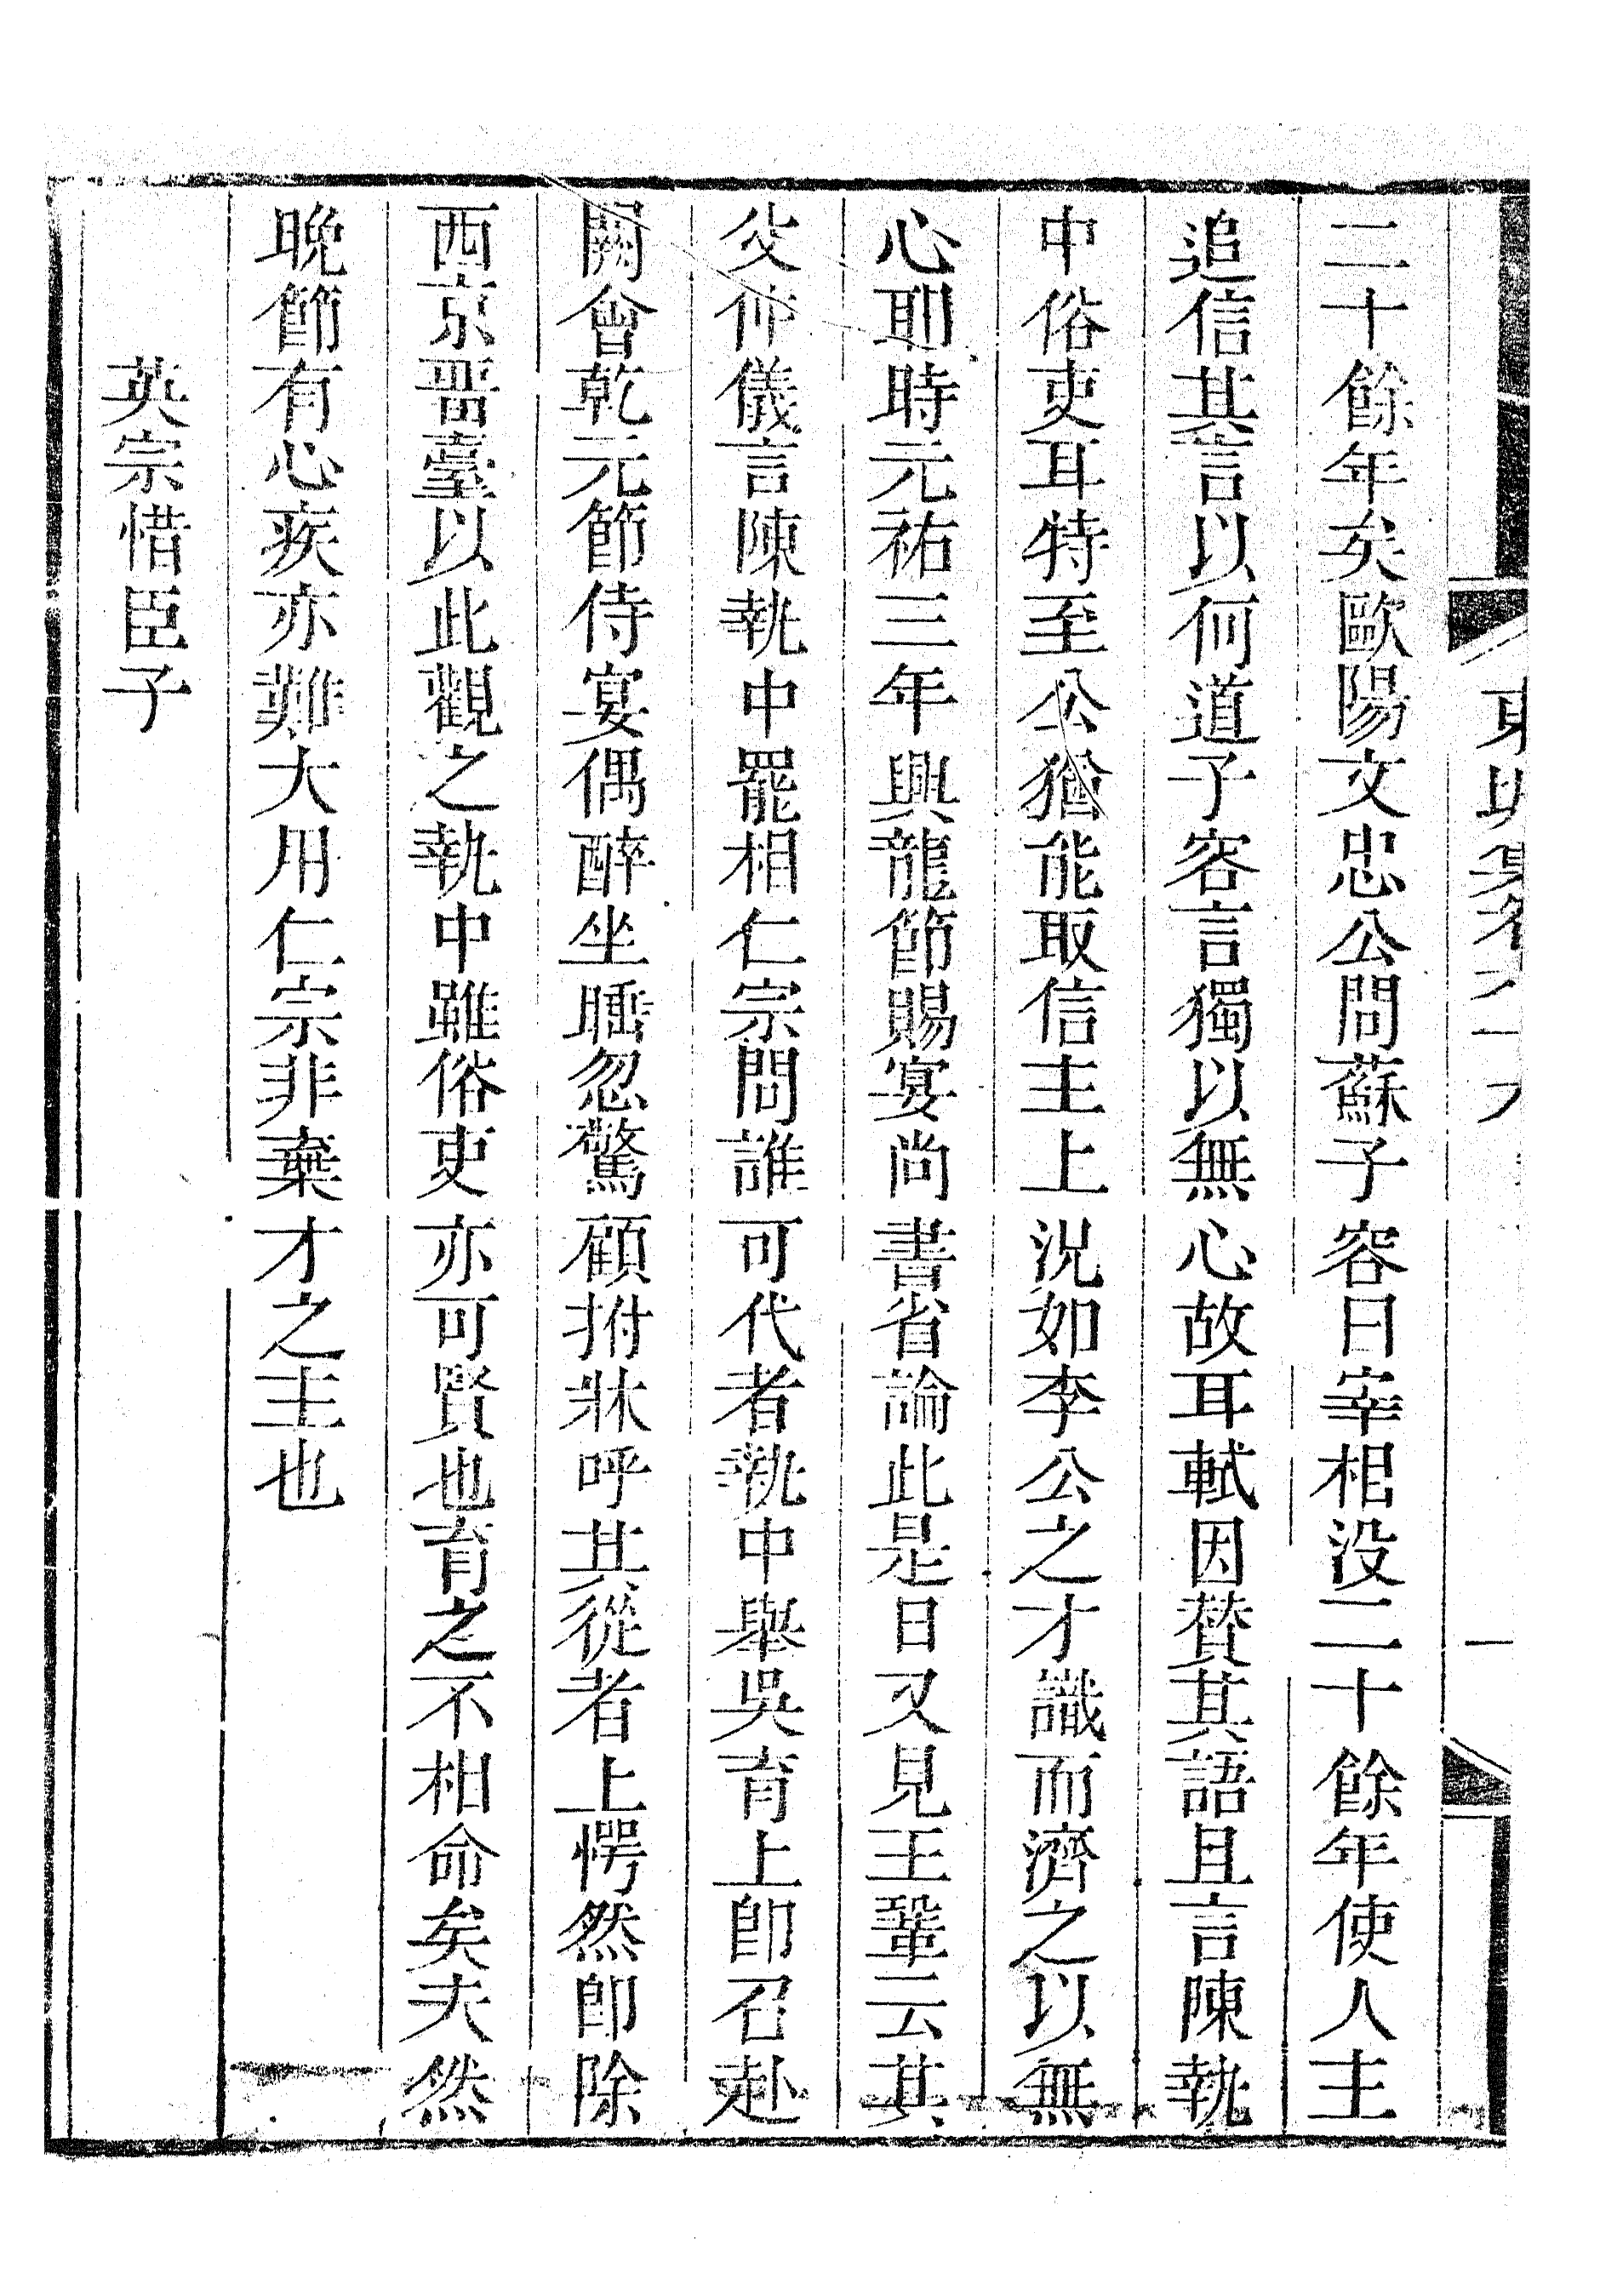 二十餘年矣歐陽文忠公問蘇子容曰宰相没二十餘年使人主
追信其言以何道子容言獨以無心故耳軾因賛其語且言陳執
中俗吏耳特至公猶能取信主上況如李公之才識而濟之以無
心耶時元祐三年興龍節賜宴尚書省論此是日又見王鞏云其
父仲儀言陳執中罷相仁宗問誰可代者執中舉吳育上卽召赴
闕會乾元節侍宴偶醉坐睡忽驚顧拊牀呼其從者上愕然卽除
西京畱臺以此觀之執中雖俗吏亦可賢也育之不相命矣夫然
晩節有心疾亦難大用仁宗非棄才之主也
英宗惜臣子